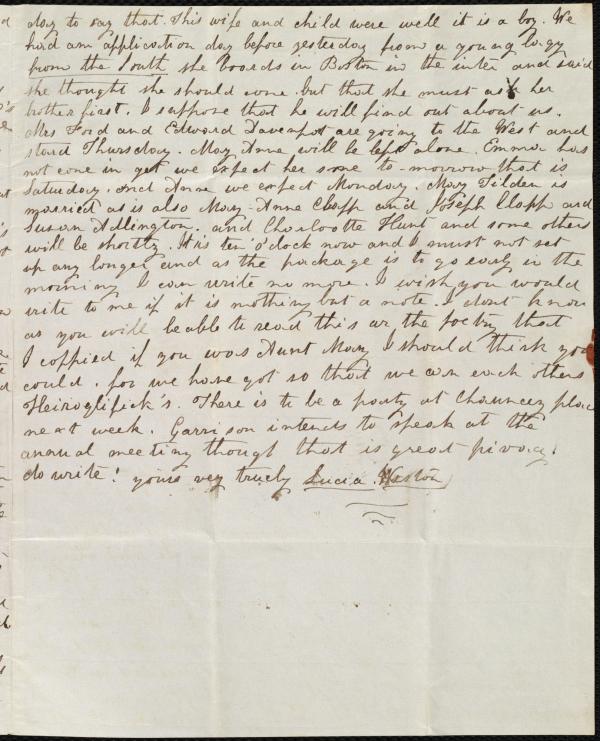 day to say that. This wife and child were well it is a boy. We
had am application day before yesterday from a young
from the South she boards in Boston in the inter and said
she thought she should come. but that she must ask her
brother first. I suppose that he will find out about us.
Mrs Ford and Edward Davenpot are going to the West and
stard Thursday. Mary Anne will be left alone. Emma has
not come in yet we expect her some to-morrow that is
Saturday. and Anne we expect Monday. Mary Tilden is
married as is also Mary-Anne Clapp and Joseph Clapp and
Susan Adlington. and Charlootte Hunt and some others
will be shortly. It is ten o'clock now and I must not set
up any longer and as the package is to go early in the
morning I can write no more. I wish you would
write to me if it is nothing but a note. I dont know
as you will be able to read this or the poetry that
I coppied if you was Aunt Mary I should think you
could. for we have got so that we can each others
Heiroglifick's. There is to be a party at Chauncey place
next week. Garrison intends to speak at the
annual meeting though that is great
do write! yours very truely Lucia. Weston